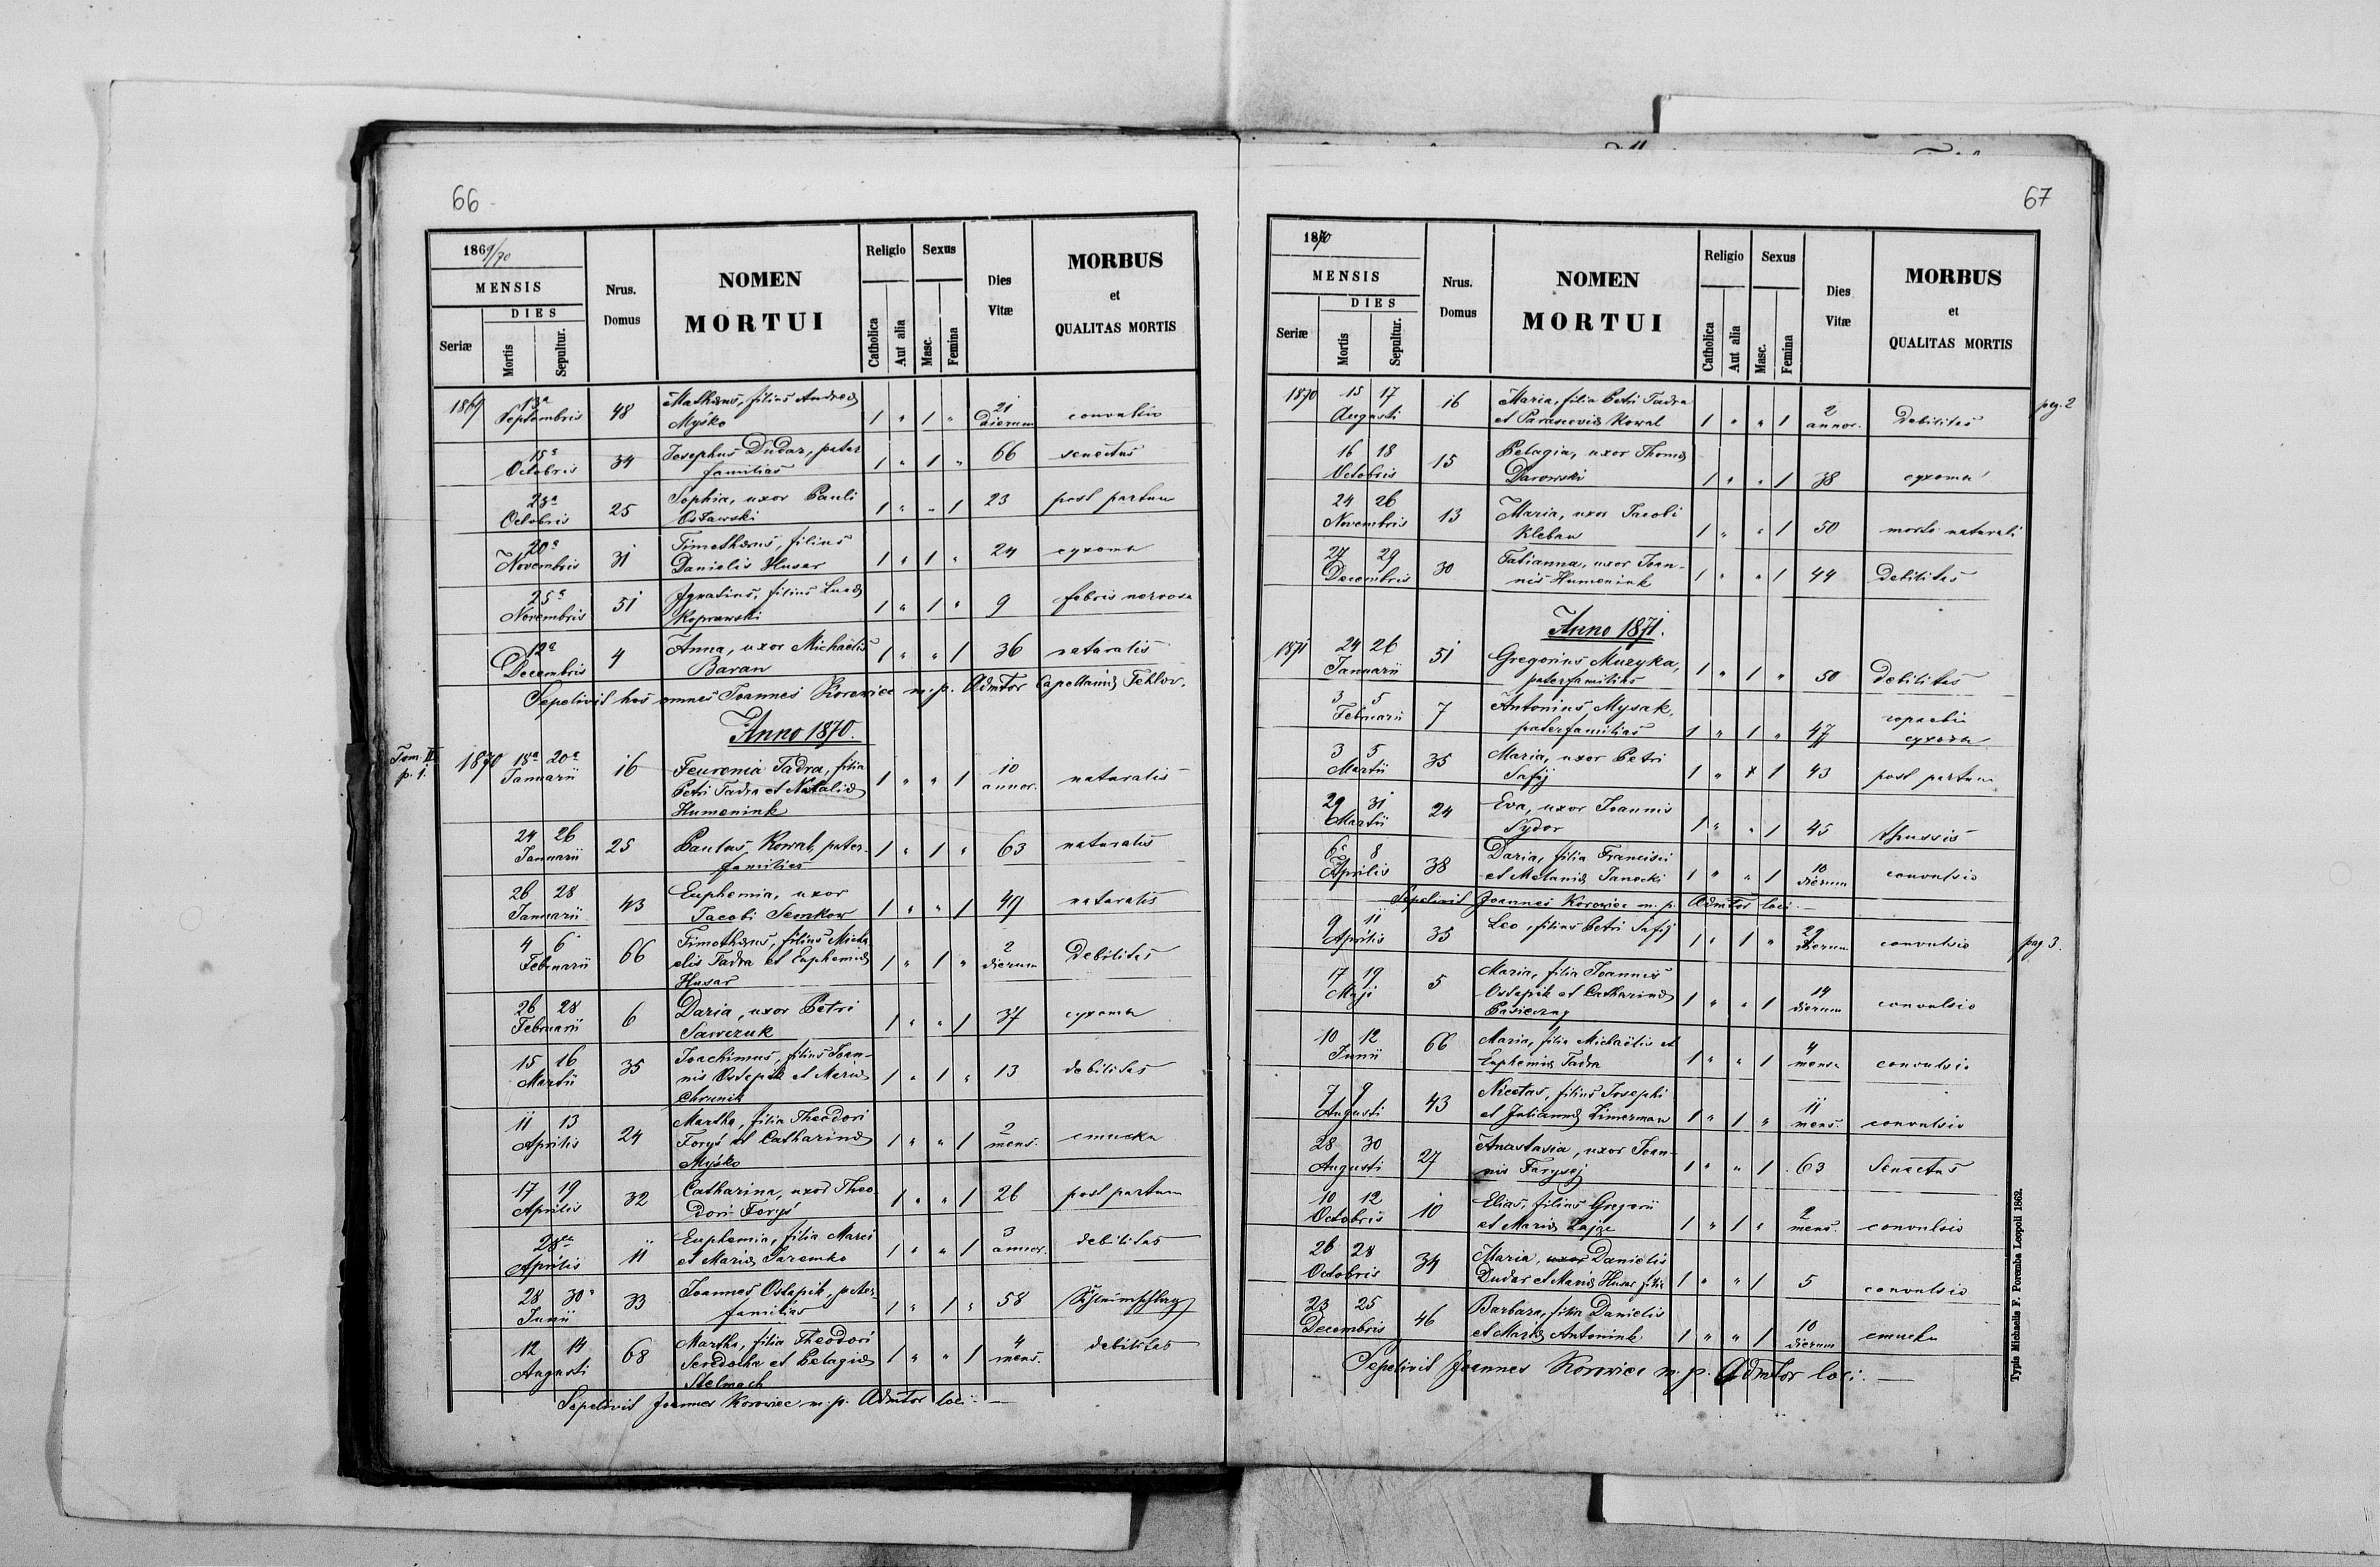 66
1869/70
MENSIS
DIES
Seriæ
Mortis
Sepultur.
Nrus.
Domus
NOMEN
MORTUI
Religio
Catholica
Aut alia
Sexus
Masc.
Femina
Dies
Vitæ
MORBUS
et
QUALITAS MORTIS
1869 13ª Septembris 48 Mathæus, filius Andreæ 1 " 1 " 21 Dierum convulsio
Myśko
15ª Octobris 34 Josephus Dudar, pater 1 " 1 " 66 senectus
familias
28ª Octobris 25 Sophia, uxor Pauli 1 " " 1 23 post partum
Osławski
20ª Novembris 31 Timothæus, filius 1 " 1 " 24 сухота
Danielis Husar
25ª Novembris 51 Ignatius, filius Lucæ 1 " 1 " 9 febris nervosa
Koprowski
12ª Decembris 4 Anna, uxor Michaëlis 1 " " 1 36 naturalis
Baran
Sepelivit hos omnes Joannes Korowiec m.p. Admtor Capellaniæ Tehlov.
Anno 1870.
Tom. II p. 1.
1870 18ª 20ª Januarii 16 Feuronia Tadra, filia 1 " " 1 10 annor. naturalis
Petri Tadra et Nataliæ
Humeniuk
24 26 Januarii 25 Paulus Kowal, pater 1 " 1 " 63 naturalis
familias
26 28 Januarii 43 Euphemia, uxor 1 " " 1 49 naturalis
Jacobi Semkow
4 6 Februarii 66 Timothæus, filius Micha 1 " 1 " 2 dierum Debilitas
elis Tadra et Euphemiæ
Husar
26 28 Februarii 6 Daria, uxor Petri 1 " " 1 37 сухота
Sawczuk
15 16 Martii 35 Joachimus, filius Joan- 1 " 1 " 13 debilitas
nis Ostapik et Mariæ
Chrunik
11 13 Aprilis 24 Martha, filia Theodori 1 " " 1 2 mens.
Foryś et Catharinæ
Myśko
17 19 Aprilis 32 Catharina, uxor Theo 1 " " 1 26 post partum
dori Foryś
28 Aprilis 11 Euphemia, filia Marci 1 " " 1 3 annor. debilitas
et Mariæ Jaremko
28 30 Junii 33 Joannes Ostapik, pater- 1 " 1 " 58
familias
12 14 Augusti 68 Martha, filia Theodori 1 " " 1 4 mens. debilitas
et Pelagiæ
Stelmach
Sepelivit Joannes Korowiec m.p. Admtor loci.
67
1870
MENSIS
DIES
Seriæ
Mortis
Sepultur.
Nrus.
Domus
NOMEN
MORTUI
Religio
Catholica
Aut alia
Sexus
Masc.
Femina
Dies
Vitæ
MORBUS
et
QUALITAS MORTIS
1870 15 17 Augusti 16 Maria, filia Petri Tadra 1 " " 1 2 annor. Debilitas pag. 2
et Parasceviæ Kowal
16 18 Octobris 15 Pelagia, uxor Thomæ 1 " " 1 38 сухота
Darowski
24 26 Novembris 13 Maria, uxor Jacobi 1 " " 1 50 morte naturali
Kleban
27 29 Decembris 30 Tatianna, uxor Joan- 1 " " 1 44 Debilitas
nis Humeniuk
Anno 1871.
1871 24 26 Januarii 51 Gregorius Muzyka, 1 " 1 " 50 Debilitas
paterfamilias
3 5 Februarii 7 Antonius Mysak, 1 " 1 " 47 сухота
paterfamilias
3 5 Martii 35 Maria, uxor Petri 1 " 1 43 post partum
Safij
29 31 Martii 24 Eva, uxor Joannis 1 " " 1 45 thussis
Sydor
6 8 Aprilis 38 Daria, filia Francisci 1 " " 1 10 dierum convulsio
et Melaniæ Janecki
Sepelivit Joannes Korowiec m.p. Admtor loci.
9 11 Aprilis 35 Leo, filius Petri Safij 1 " 1 " 29 dierum convulsio pag 3.
17 19 Maji 5 Maria, filia Joannis 1 " " 1 14 dierum convulsio
Ostapik et Catharinæ
Pasieczny
10 12 Junii 66 Maria, filia Michaëlis et 1 " " 1 4 mens. convulsio
Euphemiæ Tadra
7 9 Augusti 43 Nicetas, filius Josephi 1 " 1 " 11 mens. convulsio
et Juliannæ Zimerman
28 30 Augusti 27 Anastasia, uxor Joan- 1 " " 1 63 Senectus
nis Farysej
10 12 Octobris 10 Elias, filius Gregorii 1 " 1 " 2 mens. convulsio
et Mariæ
26 28 Octobris 34 Maria, uxor Danielis 1 " " 1 5 convulsio
Dudar et Mariæ Husar filia
23 25 Decembris 46 Barbara, filia Danielis 1 " " 1 10 dierum
et Mariæ Antoniuk
Sepelivit Joannes Korowiec m.p. Admtor loci.
Typis Michaelis F. Poremba Leopoli 1862.